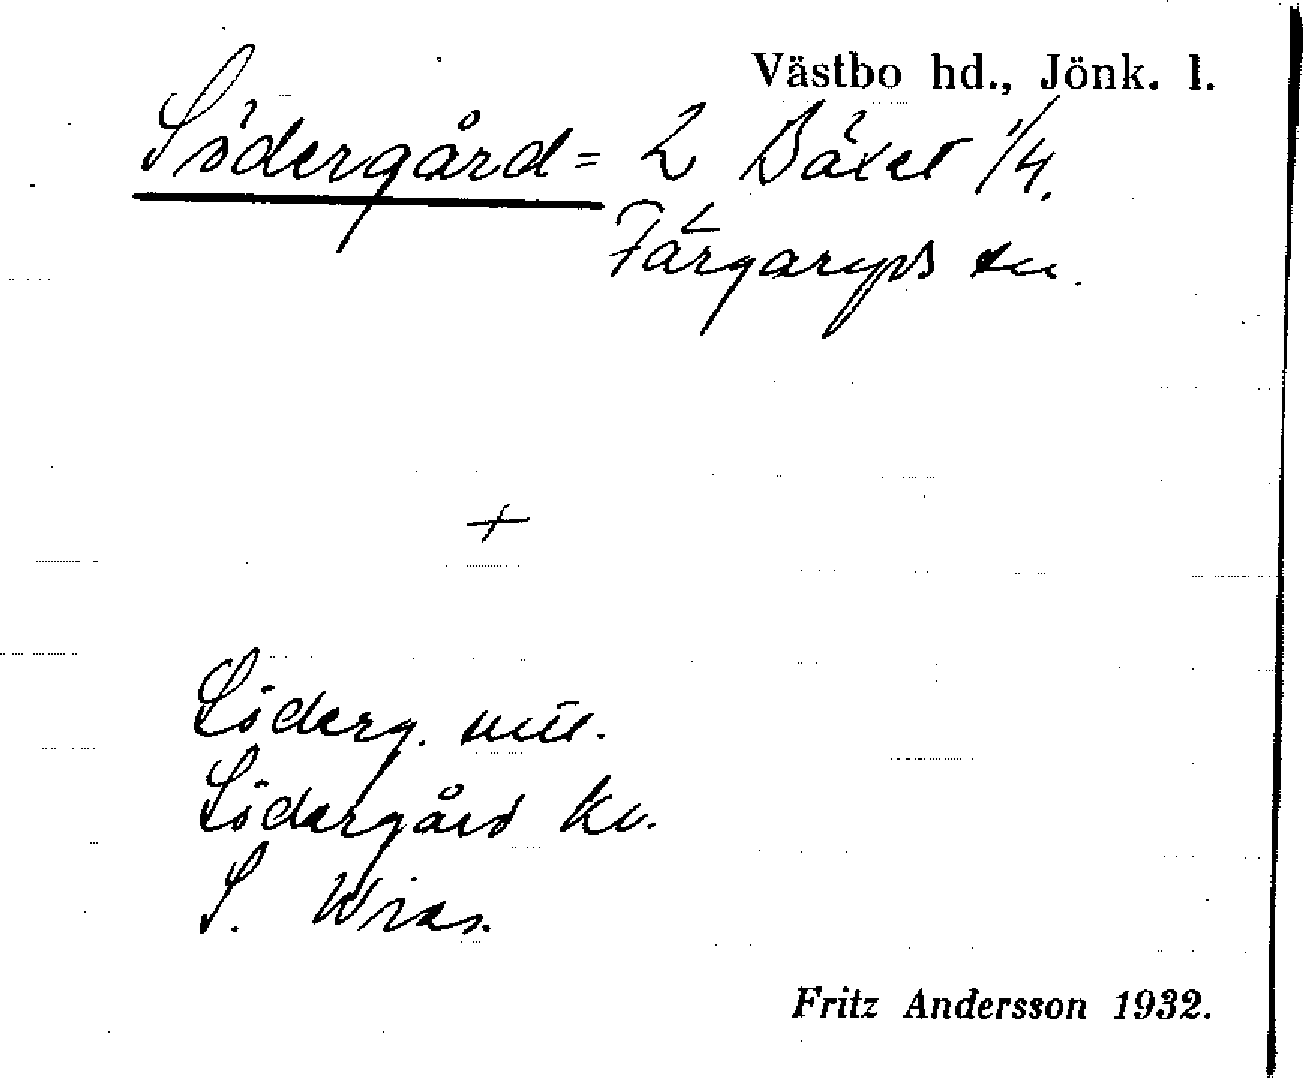 Västbo hd., Jönk. l.
Södergård = 2 Bäxet 1/4.
Färgaryds sn.
+
Söderg. utt.
Södergård kv.
S. Wiras.
Fritz Andersson 1932.